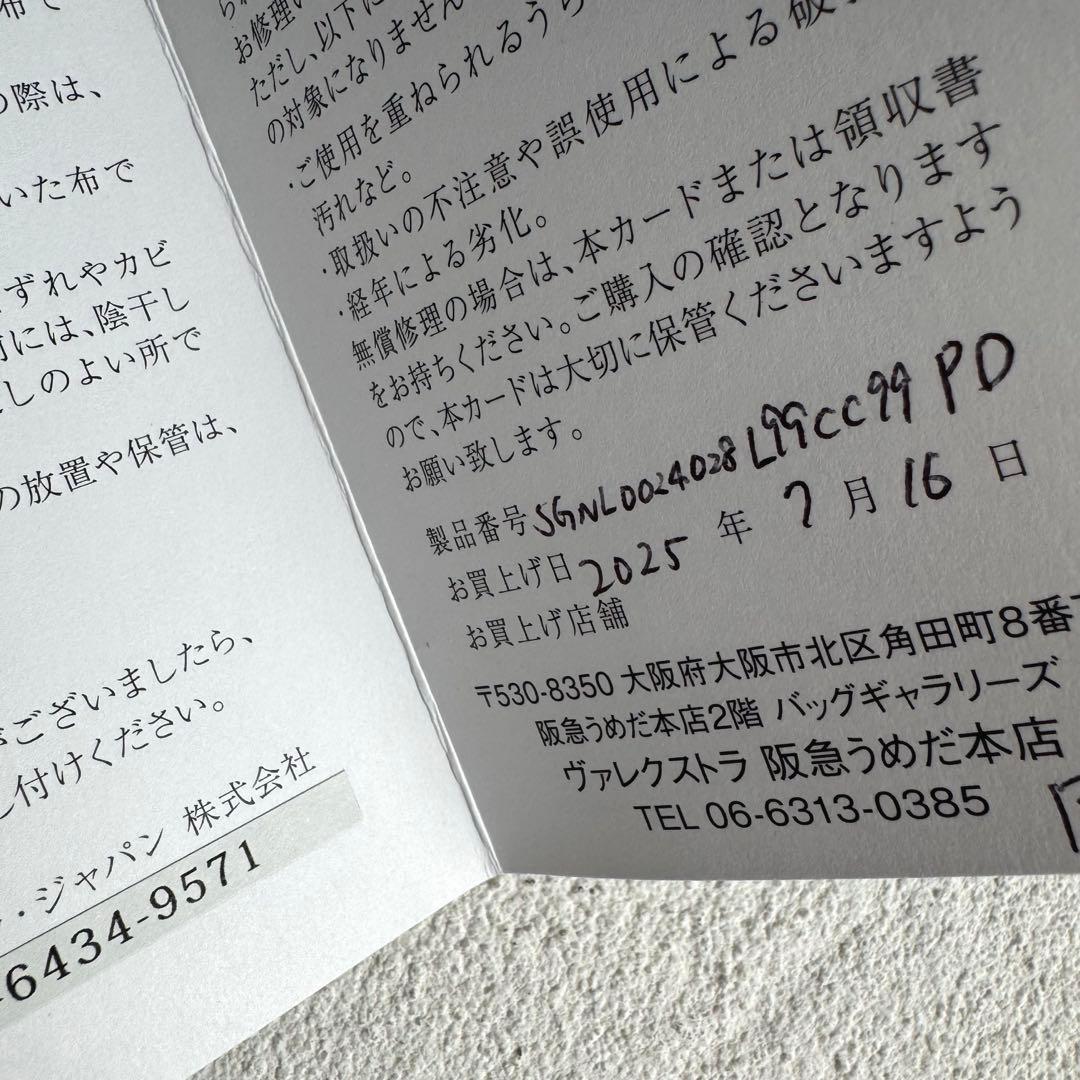 の際は、
いた布で
ずれやカビ
には、陰干し
しのよい所で
の放置や保管は、
ございましたら、
付けください。
・ジャパン 株式会社
6434-9571
お修理い
ただし、以下に
の対象になりません
・ご使用を重ねられるうち
汚れなど。
・取扱いの不注意や誤使用による破
・経年による劣化。
無償修理の場合は、本カードまたは領収書
をお持ちください。ご購入の確認となります
ので、本カードは大切に保管くださいますよう
お願い致します。
製品番号 SGNL0024028L99CC99 PD
お買上げ日 2025 年 7 月 16 日
お買上げ店舗
〒530-8350 大阪府大阪市北区角田町8番
阪急うめだ本店2階 バッグギャラリーズ
ヴァレクストラ 阪急うめだ本店
TEL 06-6313-0385